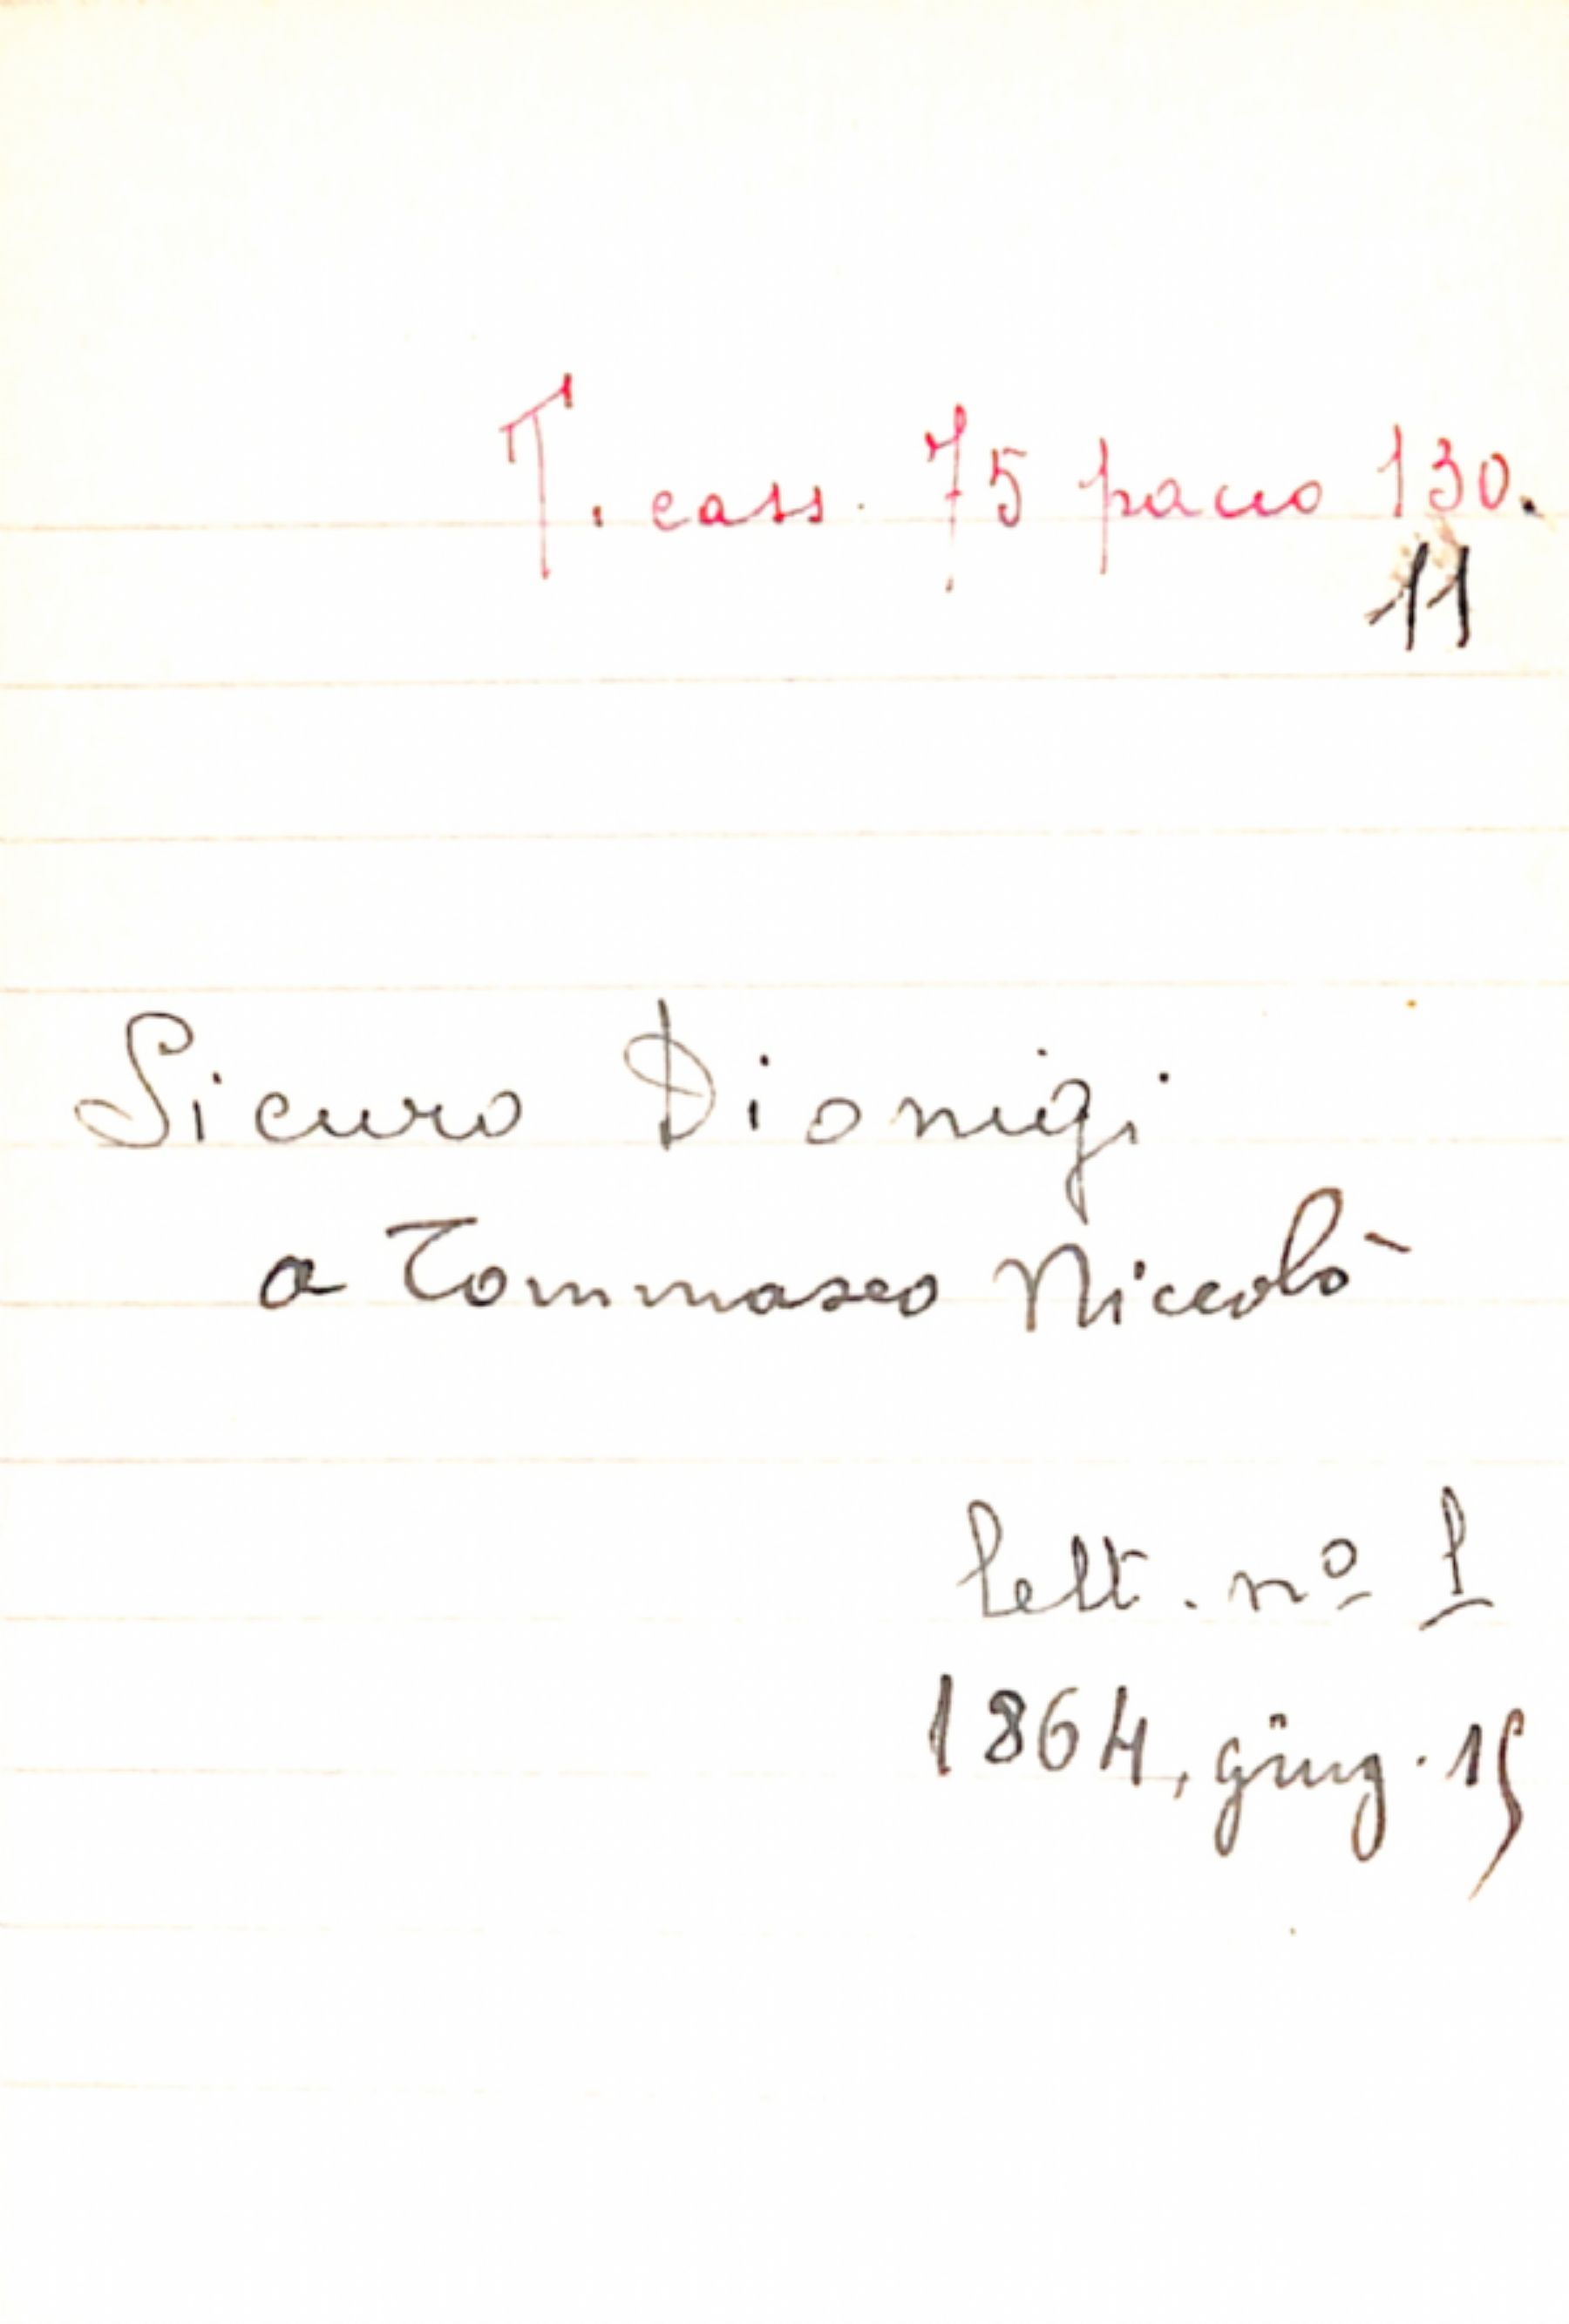 T. cass. 75 pacco 130.
11
Sicuro Dionigi
a Tommaseo Niccolò
lett. nº 1
1864, giug. 15